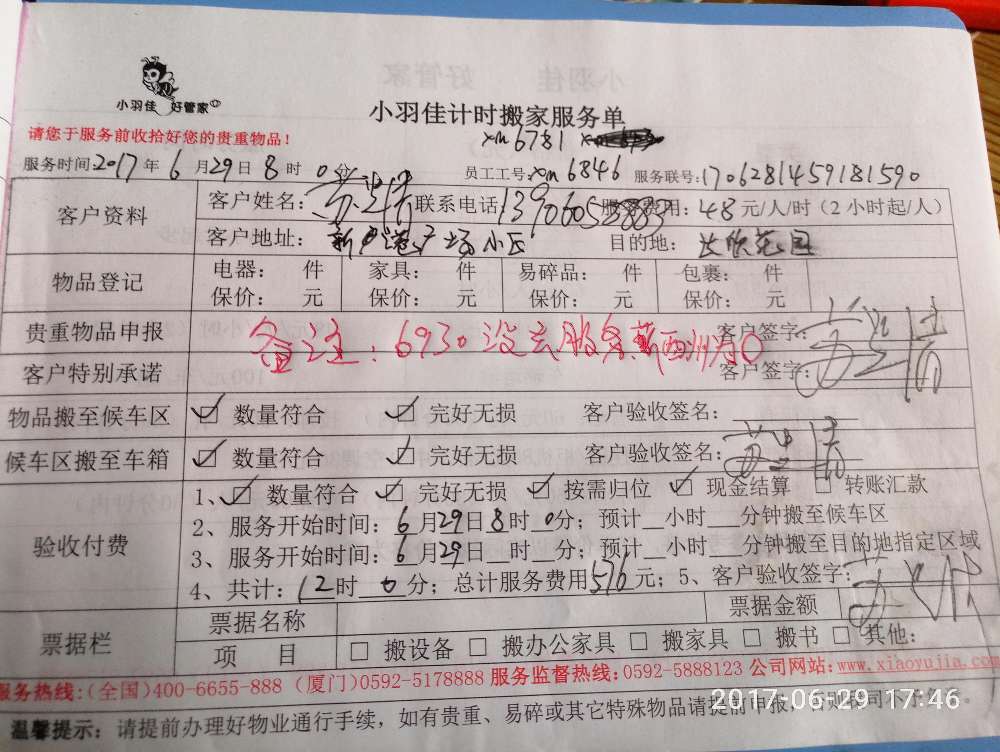 小羽佳 好管家
小羽佳计时搬家服务单
请您于服务前收拾好您的贵重物品！
xm6781
服务时间:2017年6月29日8时0分 员工工号:xm6846 服务联号:1706281459181590
客户资料 客户姓名: 联系电话: 服务费用：48元/人/时（2小时起/人）
客户地址： 新 港广场小区 目的地：
物品登记 电器： 件 家具： 件 易碎品： 件 包裹： 件
保价： 元 保价： 元 保价： 元 保价： 元
贵重物品申报 客户签字:
备注：6930没去服务
客户特别承诺 客户签字:
物品搬至候车区 ☑ 数量符合 ☑ 完好无损 客户验收签名：
候车区搬至车箱 ☑ 数量符合 ☑ 完好无损 客户验收签名：
验收付费 1、☑ 数量符合 ☑ 完好无损 ☑ 按需归位 ☑ 现金结算 □ 转账汇款
2、服务开始时间：6月29日8时0分；预计__小时___分钟搬至候车区
3、服务开始时间：6月29日__时__分；预计__小时___分钟搬至目的地指定区域
4、共计：12时0分；总计服务费用576元；5、客户验收签字：
票据栏 票据名称 票据金额
项 目 □ 搬设备 □ 搬办公家具 □ 搬家具 □ 搬书 □ 其他:
服务热线:(全国)400-6655-888 (厦门)0592-5178888 服务监督热线:0592-5888123 公司网站:www.xiaoyujia.com
温馨提示：请提前办理好物业通行手续，如有贵重、易碎或其它特殊物品请提前申报，
2017-06-29 17:46